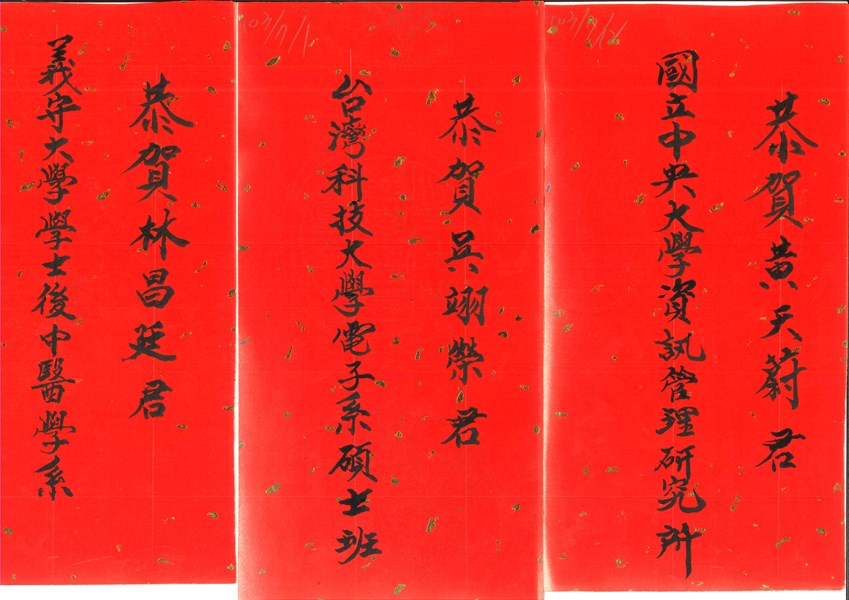 恭賀黃天蔚君
國立中央大學資訊管理研究所
恭賀吳翊榮君
台灣科技大學電子系碩士班
恭賀林昌廷君
義守大學學士後中醫學系